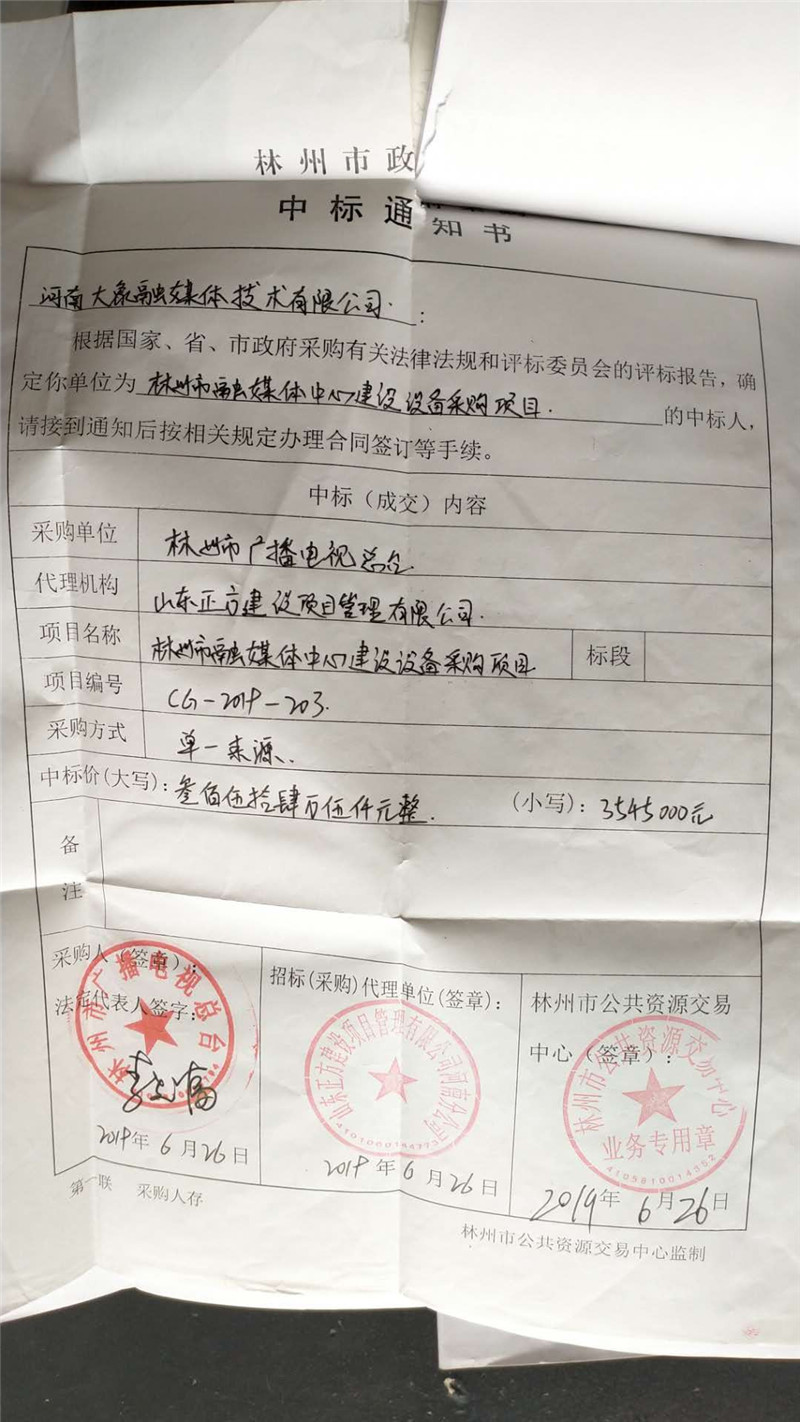 林州市政
中标通知书
河南大象融媒体技术有限公司.:
根据国家、省、市政府采购有关法律法规和评标委员会的评标报告，确
定你单位为 林州市融媒体中心建设设备采购项目. 的中标人，
请接到通知后按相关规定办理合同签订等手续。
中标（成交）内容
采购单位 林州市广播电视总台
代理机构 山东正方建设项目管理有限公司.
项目名称 林州市融媒体中心建设设备采购项目 标段
项目编号 CG-2019-203.
采购方式 单一来源.
中标价(大写): 叁佰伍拾肆万伍仟元整. (小写): 3545000元
备注
采购人（签章）:
法定代表人签字:
林州市广播电视总台
2019年6月26日
招标(采购)代理单位(签章):
山东正方建设项目管理有限公司河南分公司
2019年6月26日
林州市公共资源交易
中心（签章）:
林州市公共资源交易中心
业务专用章
2019年6月26日
第一联 采购人存
林州市公共资源交易中心监制